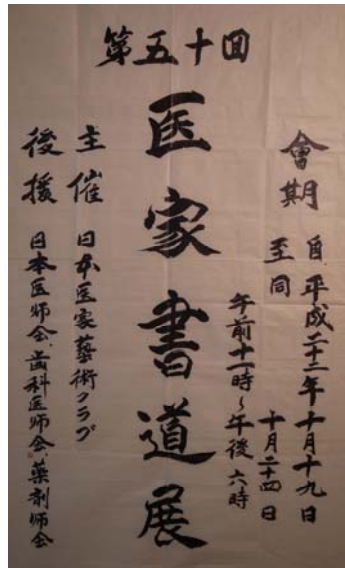 第五十回
會期 自平成二十二年十月十九日
至同 十月二十四日
午前十一時〜午後六時
医家書道展
主催 日本医家藝術クラブ
後援 日本医師会、歯科医師会、薬剤師会